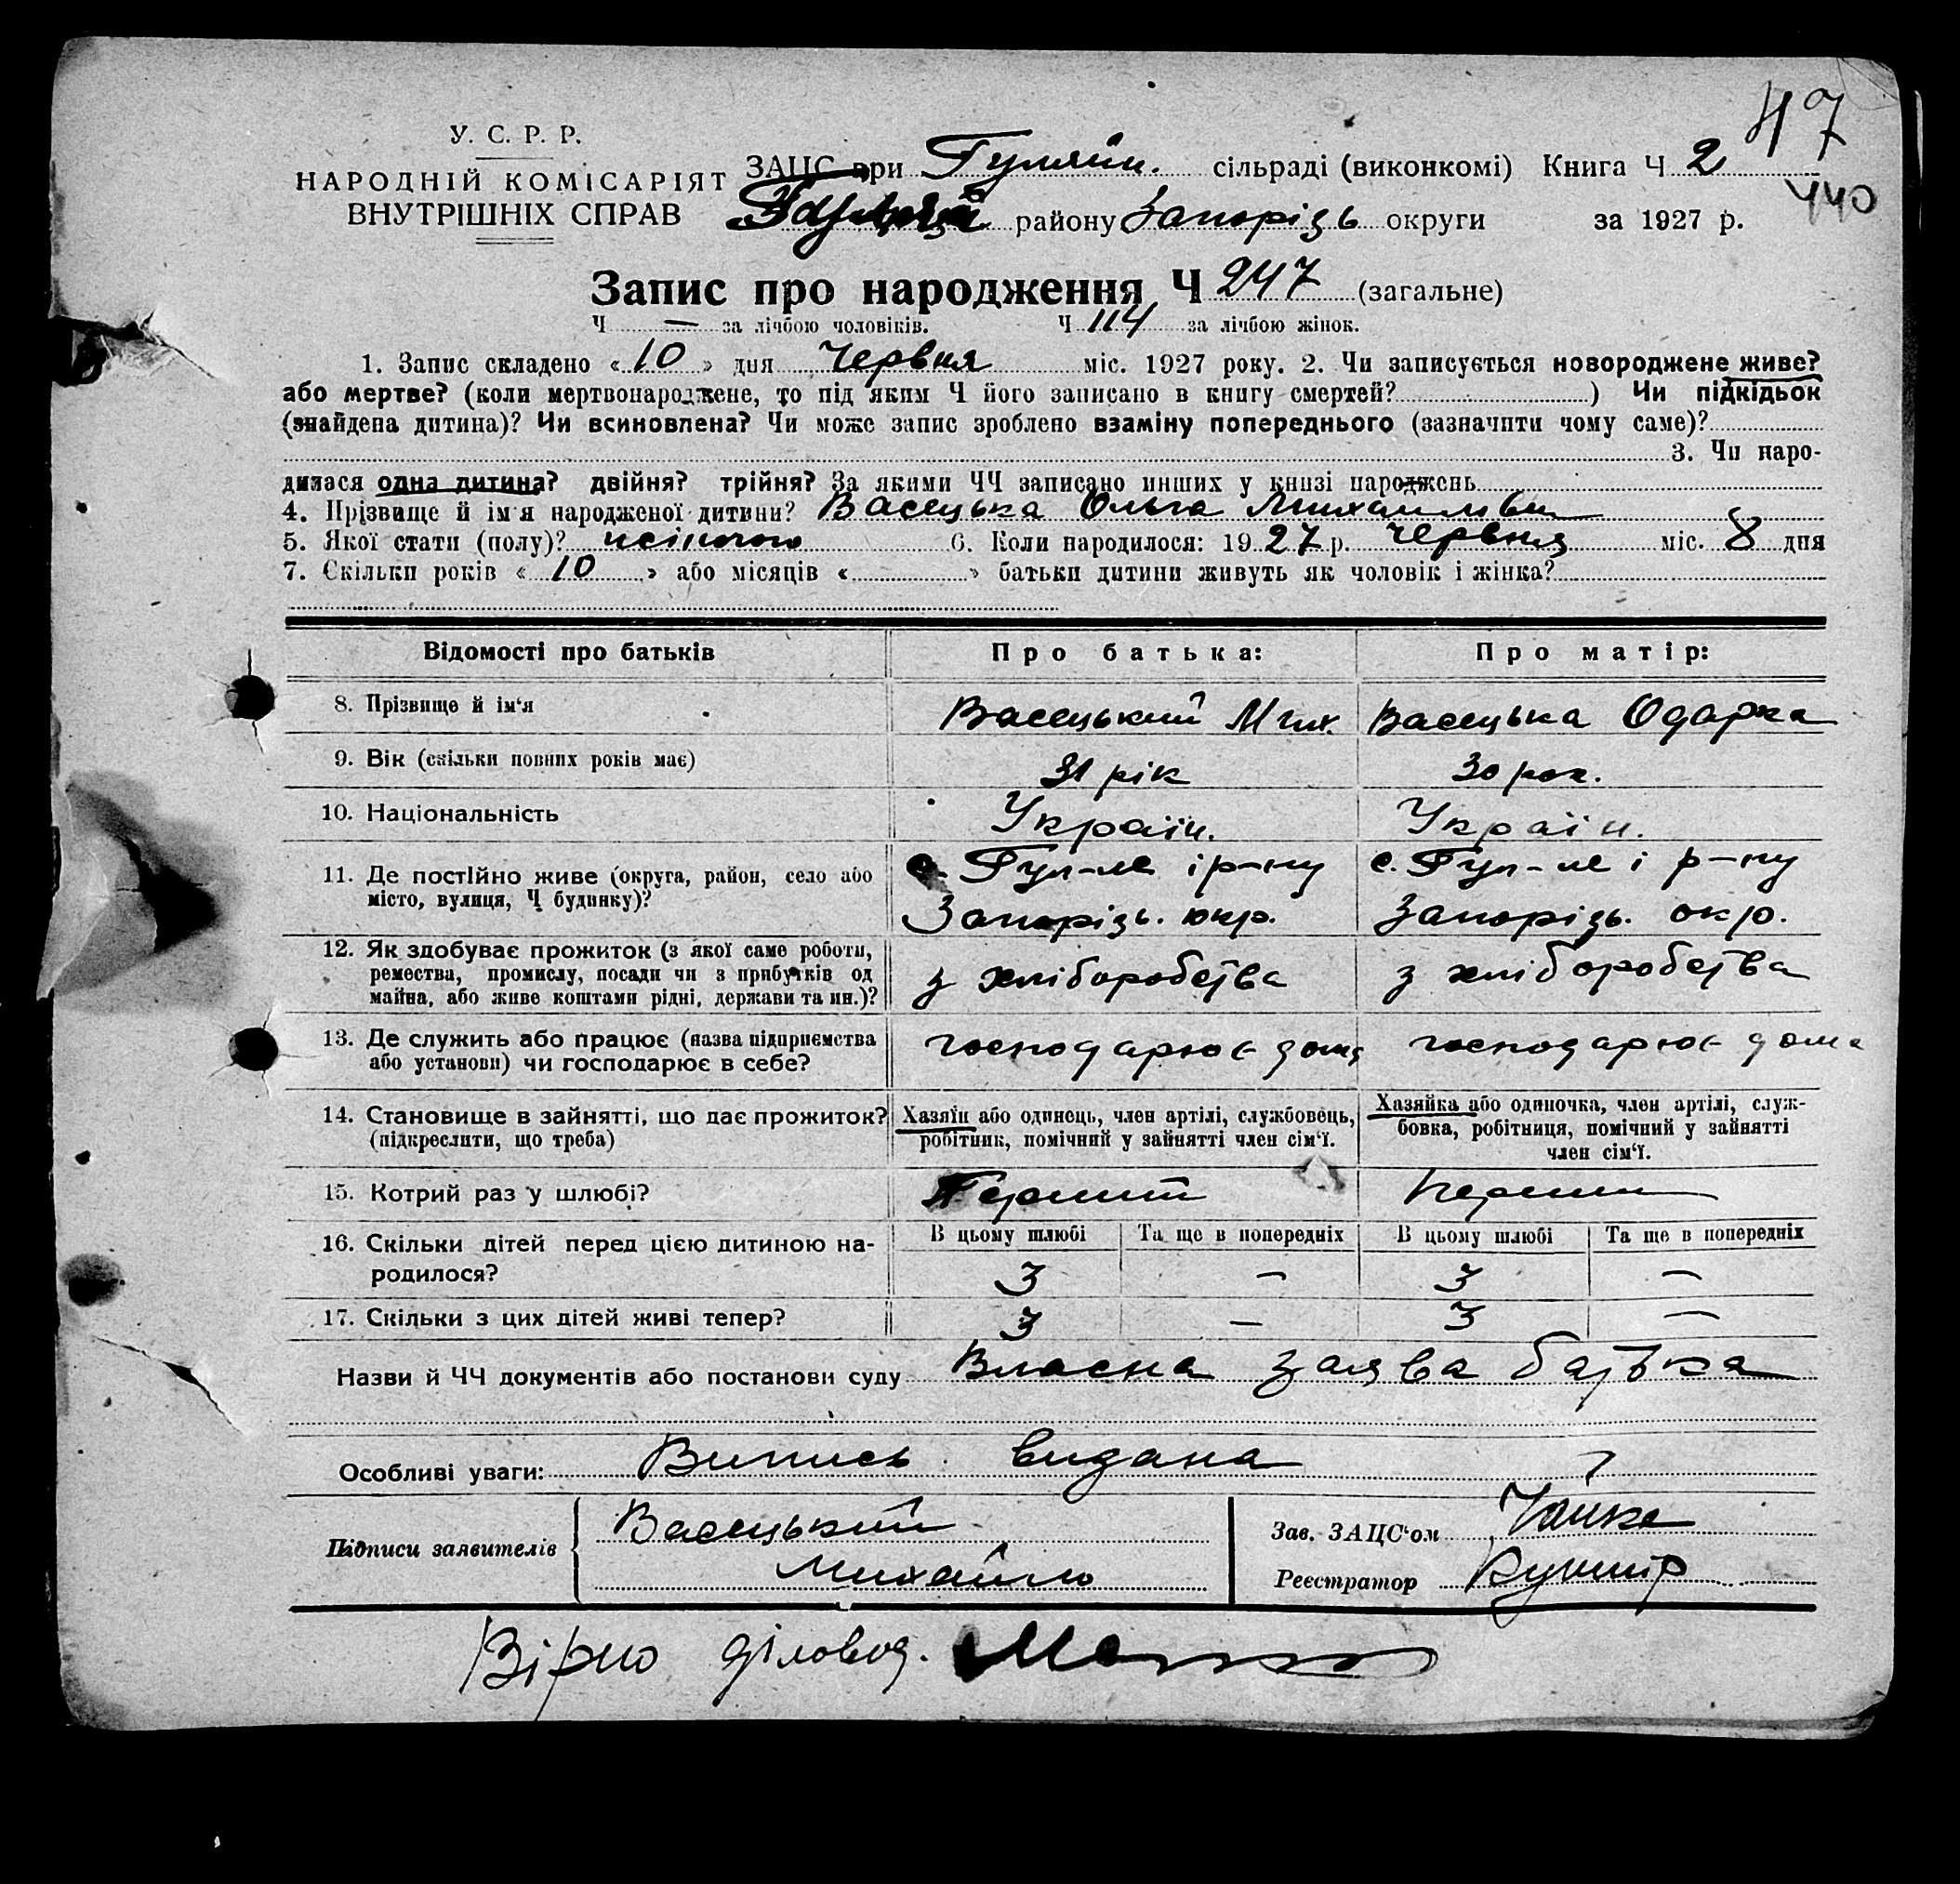 47
У. С. Р. Р.
НАРОДНІЙ КОМІСАРІЯТ
ВНУТРІШНІХ СПРАВ
ЗАЦС при Гуляйп. сільраді (виконкомі) Книга Ч 2
440
району Запорізь округи за 1927 р.
Запис про народження Ч 247 (загальне)
Ч — за лічбою чоловіків. Ч 114 за лічбою жінок.
1. Запис складено «10» дня Червня міс. 1927 року. 2. Чи записується новороджене живе?
або мертве? (коли мертвонароджене, то під яким Ч його записано в книгу смертей? ) Чи підкідьок
(знайдена дитина)? Чи всиновлена? Чи може запис зроблено взаміну попереднього (зазначити чому саме)?
3. Чи наро-
дилася одна дитина? двійня? трійня? За якими ЧЧ записано инших у книзі народжень
4. Прізвище й ім'я народженої дитини? Васецька Ольга Михайлівн
5. Якої стати (полу)? жіночого 6. Коли народилося: 1927 р. Червня міс. 8 дня
7. Скільки років «10» або місяців « » батьки дитини живуть як чоловік і жінка?
Відомості про батьків Про батька: Про матір:
8. Прізвище й ім'я Васецький Мих. Васецька Одарка
9. Вік (скільки повних років має) 31 рік 30 рок.
10. Національність Україн. Україн.
11. Де постійно живе (округа, район, село або місто, вулиця, Ч будинку)? с. Гул-ле і р-ну Запорізь. окр. с. Гул-ле і р-ну Запорізь. окр.
12. Як здобуває прожиток (з якої саме роботи, ремества, промислу, посади чи з прибутків од майна, або живе коштами рідні, держави та ин.)? з хліборобства з хліборобства
13. Де служить або працює (назва підприємства або установи) чи господарює в себе? господарює дома господарює дома
14. Становище в зайнятті, що дає прожиток? (підкреслити, що треба) Хазяїн або одинець, член артілі, службовець, робітник, помічний у зайнятті член сім'ї. Хазяйка або одиночка, член артілі, служ-
бовка, робітниця, помічний у зайнятті
член сім'ї.
15. Котрий раз у шлюбі? Перший Перший
16. Скільки дітей перед цією дитиною на-
родилося? В цьому шлюбі Та ще в попередніх В цьому шлюбі Та ще в попередніх
3 — 3 —
17. Скільки з цих дітей живі тепер? 3 — 3 —
Назви й ЧЧ документів або постанови суду Власна заява батька
Особливі уваги: Випись видана
Підписи заявителів Васецький Зав. ЗАЦС'ом
Михайло Реєстратор Кушнір
Вірно діловод.